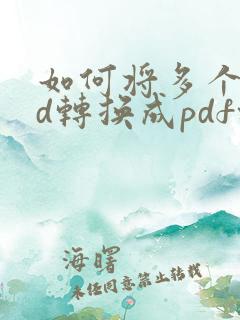 如何将多个
d轉換成pdf
海曙
未经同意禁止转载